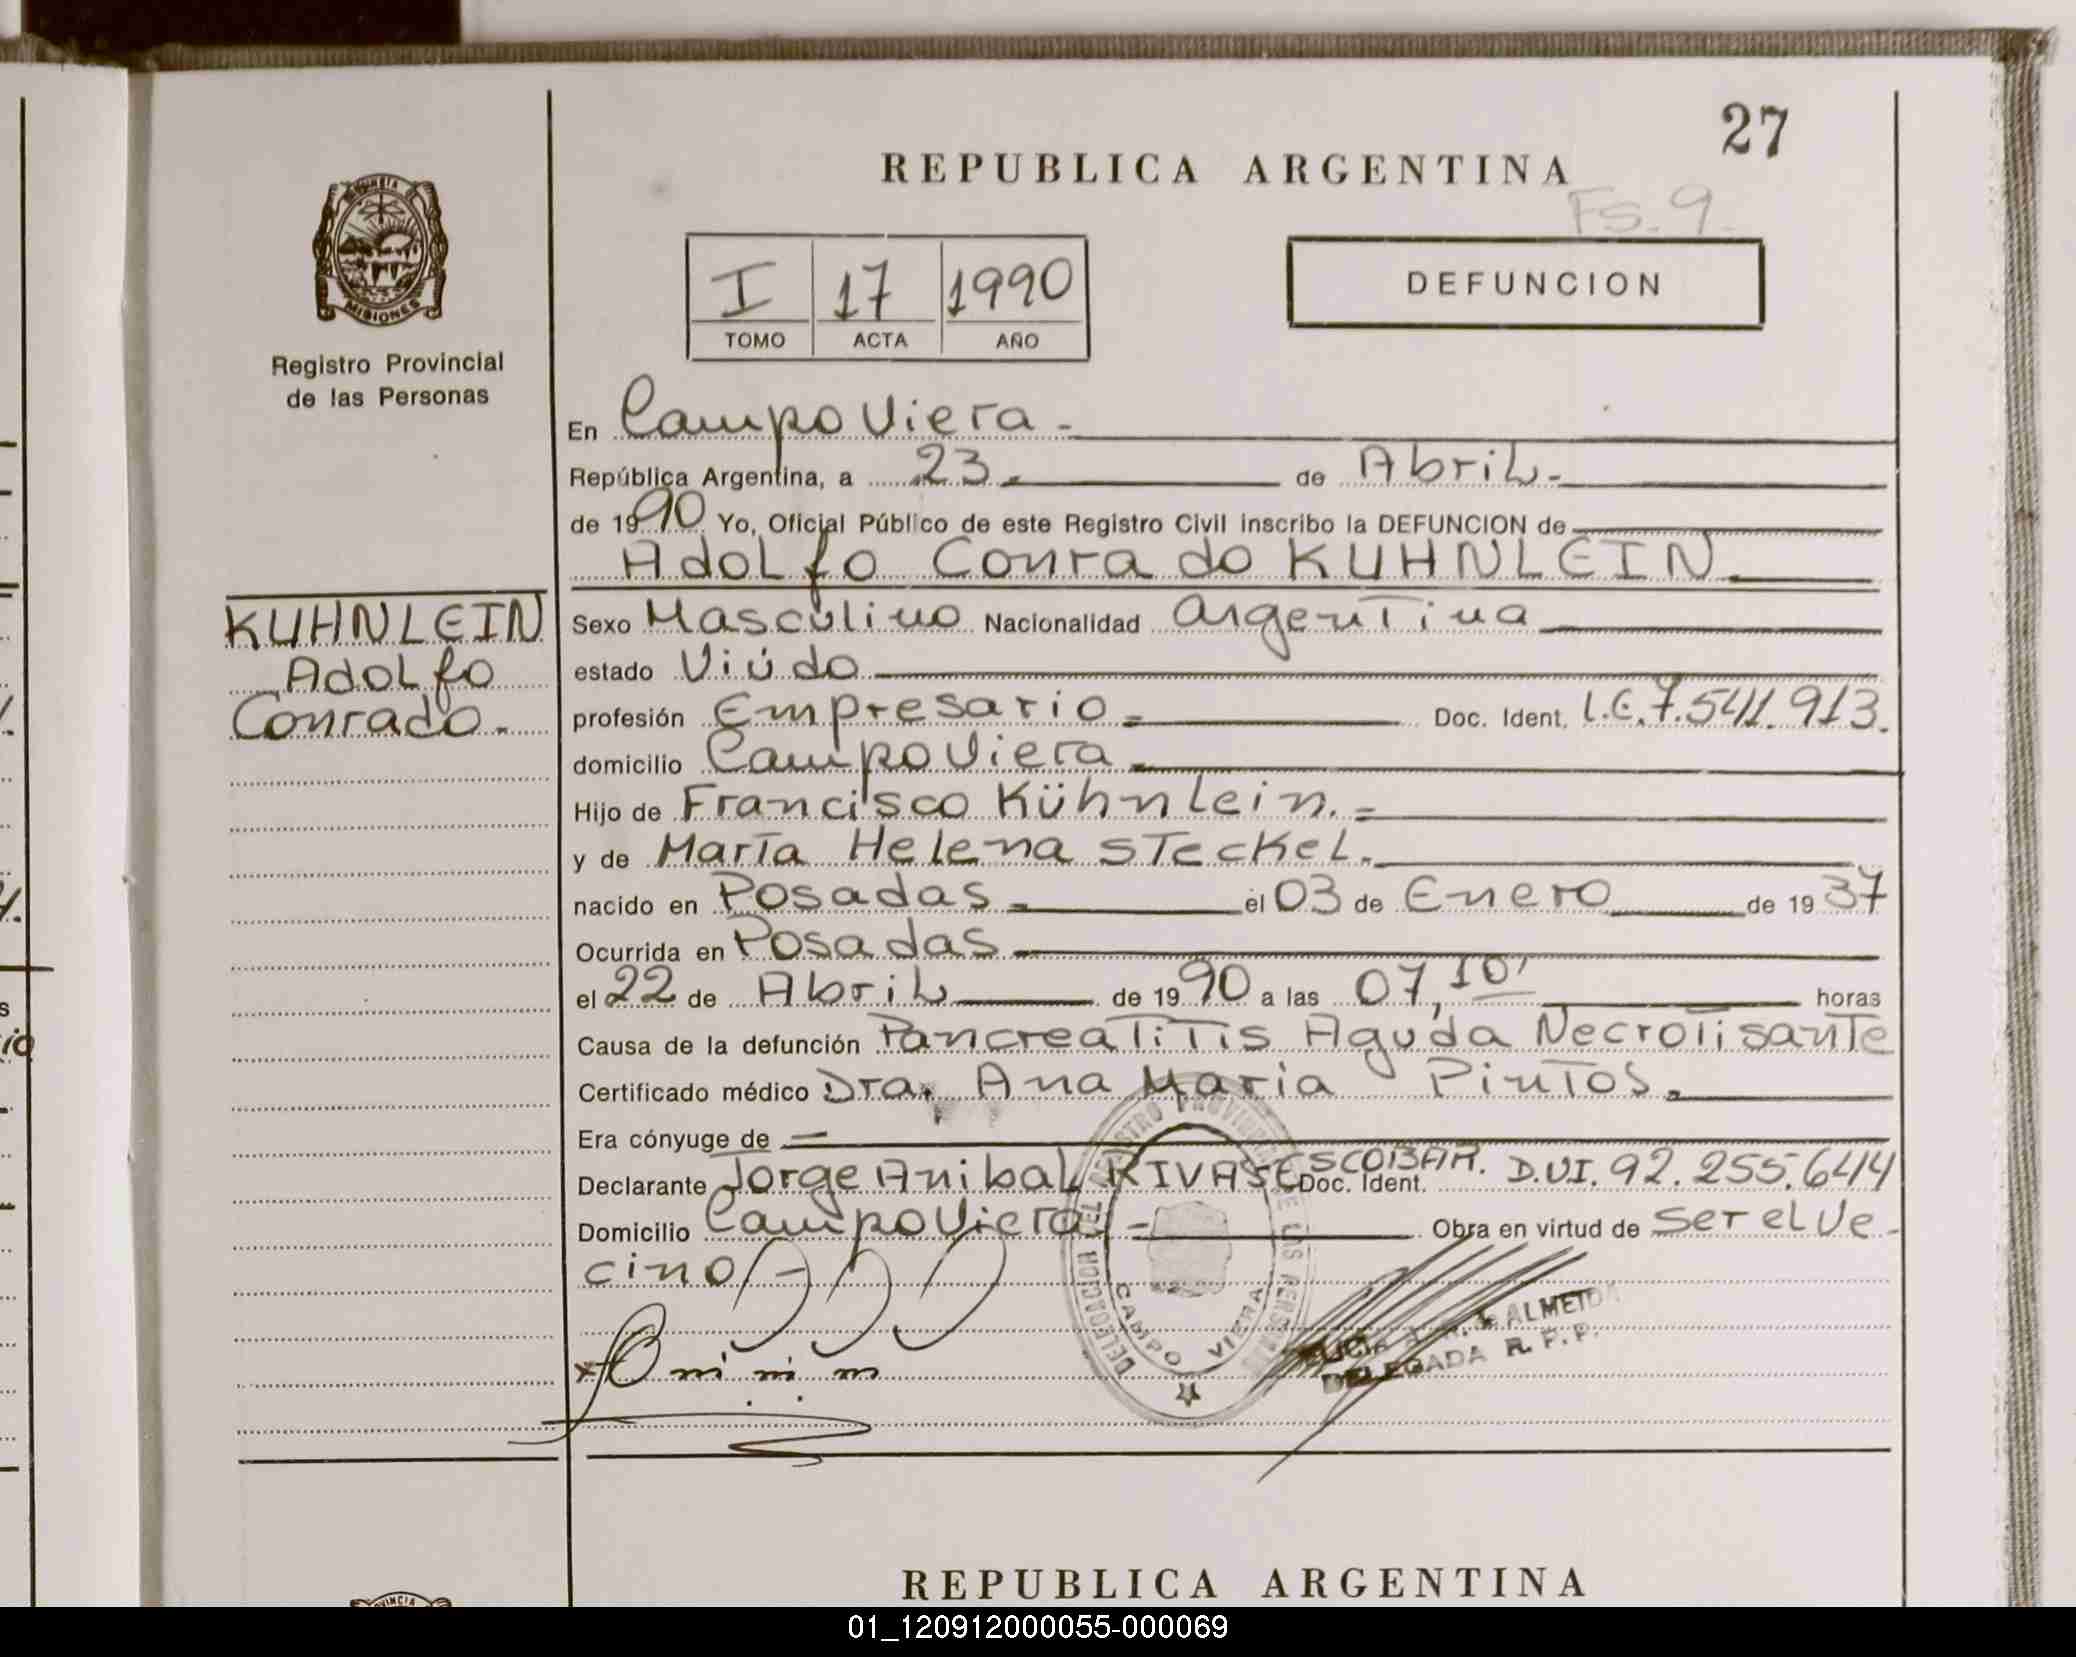 27
REPUBLICA ARGENTINA
Fs. 9.
PROVINCIA
MISIONES
Registro Provincial
de las Personas
I 17 1990
TOMO ACTA AÑO
DEFUNCION
En Campo Viera -
República Argentina, a 23. de Abril.-
de 1990 Yo, Oficial Público de este Registro Civil inscribo la DEFUNCION de
Adolfo Conrado KUHNLEIN.
KUHNLEIN
Adolfo
Conrado.-
Sexo Masculino Nacionalidad Argentina
estado Viúdo
profesión Empresario.= Doc. Ident. L.E.7.541.913.
domicilio Campo Viera.
Hijo de Francisco Kühnlein.=
y de María Helena STeckel.-
nacido en Posadas.- el 03 de Enero de 1937
Ocurrida en Posadas
el 22 de Abril de 1990 a las 07,10' horas
Causa de la defunción PancreaTiTis Aguda NecroTisanTe
Certificado médico Dra. Ana Maria PinTos.
Era cónyuge de =
Declarante Jorge Anibal RIVAS ESCOBAR. Doc. Ident. D.UI. 92.255.644
Domicilio Campo Viera - Obra en virtud de ser el Ve-
cino/-
DELEGACION DEL REGISTRO PROVINCIAL DE LAS PERSONAS
CAMPO VIERA
ALMEIDA
DELEGADA R. P. P.
REPUBLICA ARGENTINA
PROVINCIA
01_120912000055-000069